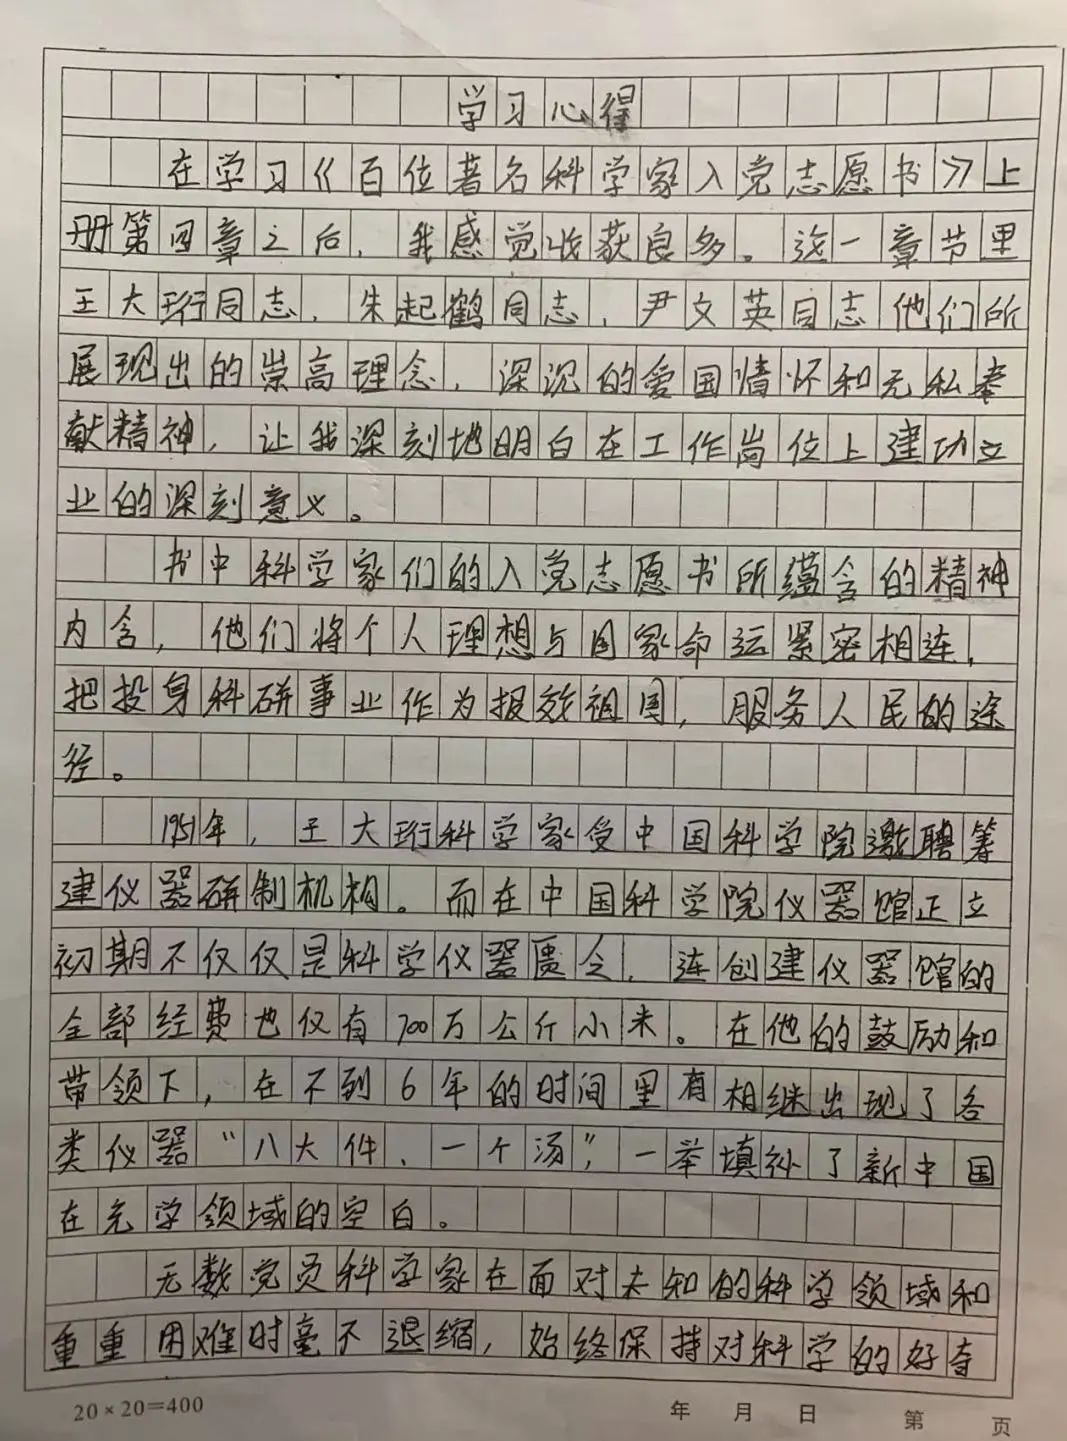 学习心得
在学习《百位著名科学家入党志愿书》上
册第四章之后，我感觉收获良多。这一章节里
王大珩同志，朱起鹤同志，尹文英同志他们所
展现出的崇高理念，深沉的爱国情怀和无私奉
献精神，让我深刻地明白在工作岗位上建功立
业的深刻意义。
书中科学家们的入党志愿书所蕴含的精神
内含，他们将个人理想与国家命运紧密相连，
把投身科研事业作为报效祖国，服务人民的途
径。
1951年，王大珩科学家受中国科学院邀聘筹
建仪器研制机构。而在中国科学院仪器馆正立
初期不仅仅是科学仪器匮乏，连创建仪器馆的
全部经费也仅有700万公斤小米。在他的鼓励和
带领下，在不到6年的时间里有相继出现了各
类仪器“八大件、一个汤”，一举填补了新中国
在光学领域的空白。
无数党员科学家在面对未知的科学领域和
重重困难时毫不退缩，始终保持对科学的好奇
20×20=400 年 月 日 第 页